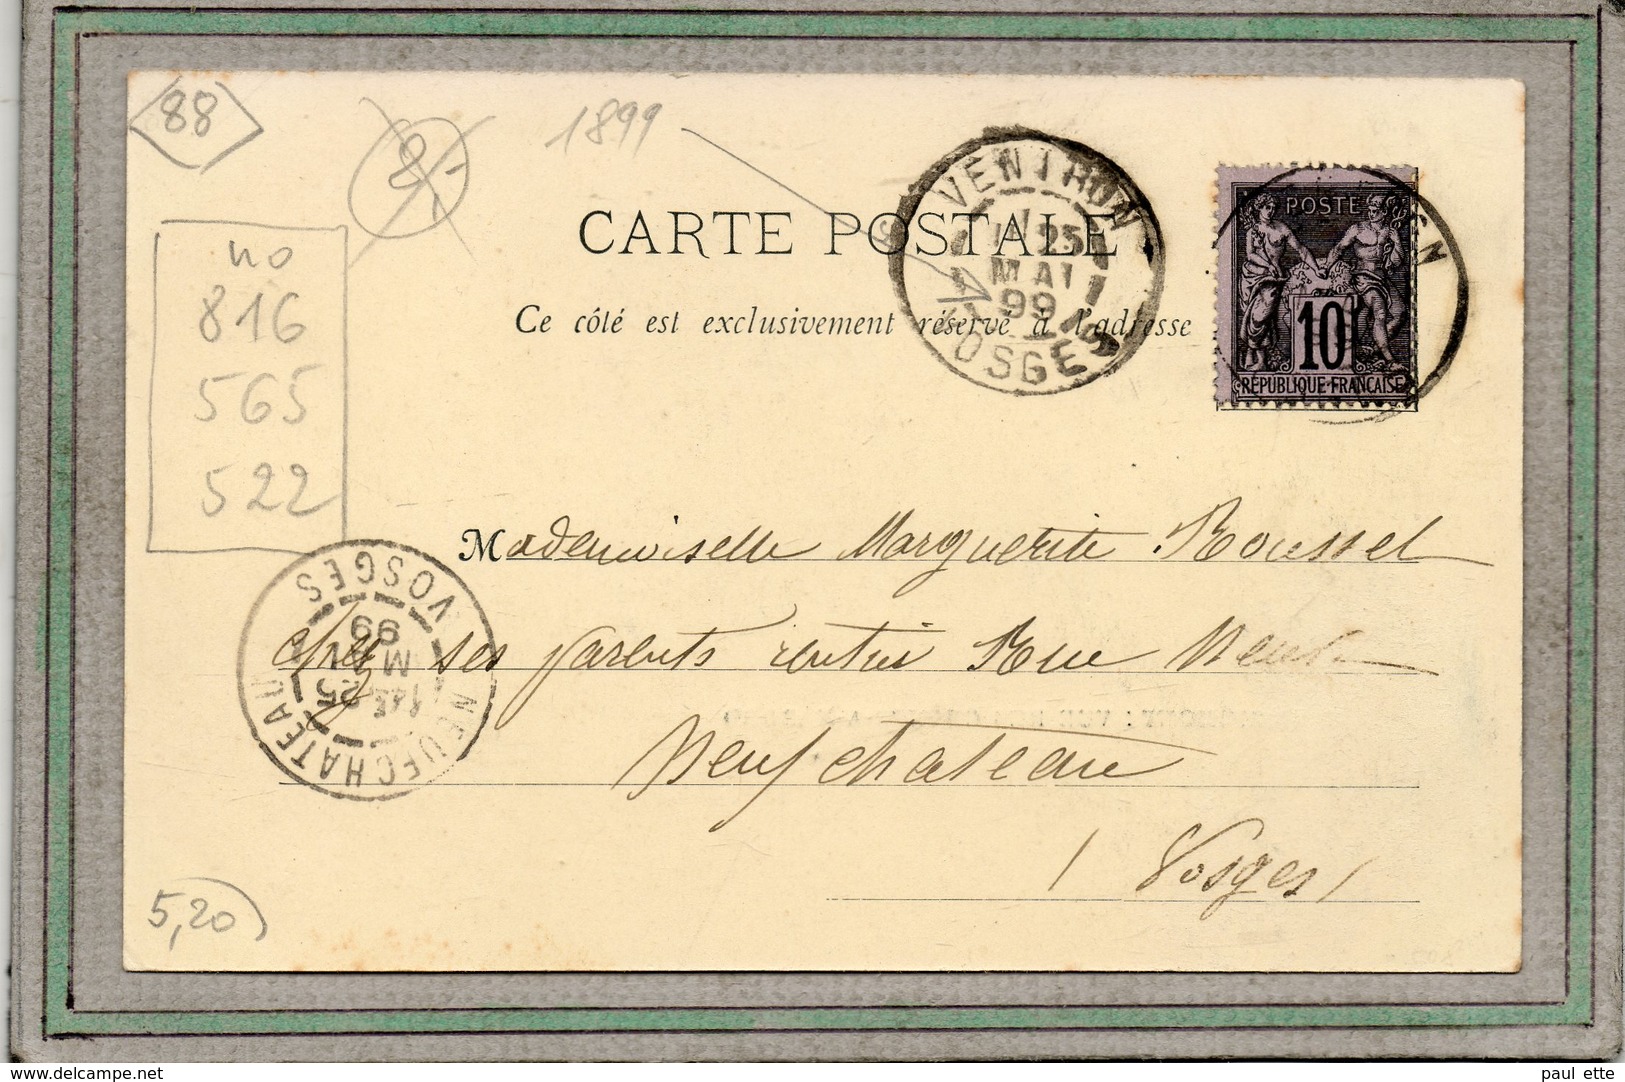 88
1899
VENTRON
25
MAI
99
VOSGES
POSTE
10
RÉPUBLIQUE FRANÇAISE
CARTE POSTALE
Ce côté est exclusivement réservé à l'adresse
no
816
565
522
Mademoiselle Marguerite Roussel
chez ses parents rentier Rue Neuve
Neufchateau
(Vosges)
NEUFCHATEAU
25
MAI
99
VOSGES
5,20
www.delcampe.net
paul ette